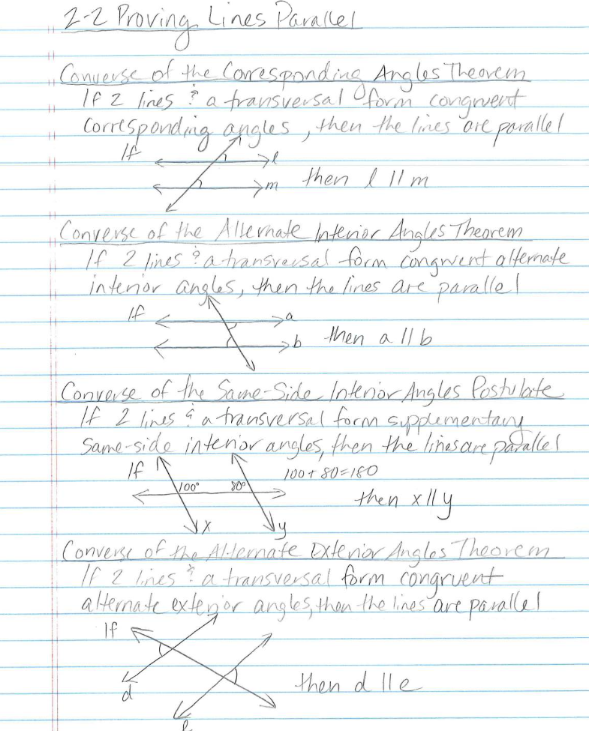 2-2 Proving Lines Parallel
Converse of the Corresponding Angles Theorem
If 2 lines & a transversal form congruent
corresponding angles, then the lines are parallel
If
l
m
then l || m
Converse of the Alternate Interior Angles Theorem
If 2 lines & a transversal form congruent alternate
interior angles, then the lines are parallel
If
a
b
then a || b
Converse of the Same-Side Interior Angles Postulate
If 2 lines & a transversal form supplementary
same-side interior angles, then the lines are parallel
If
100°
80°
100+80=180
then x || y
x
y
Converse of the Alternate Exterior Angles Theorem
If 2 lines & a transversal form congruent
alternate exterior angles, then the lines are parallel
If
d
then d || e
e